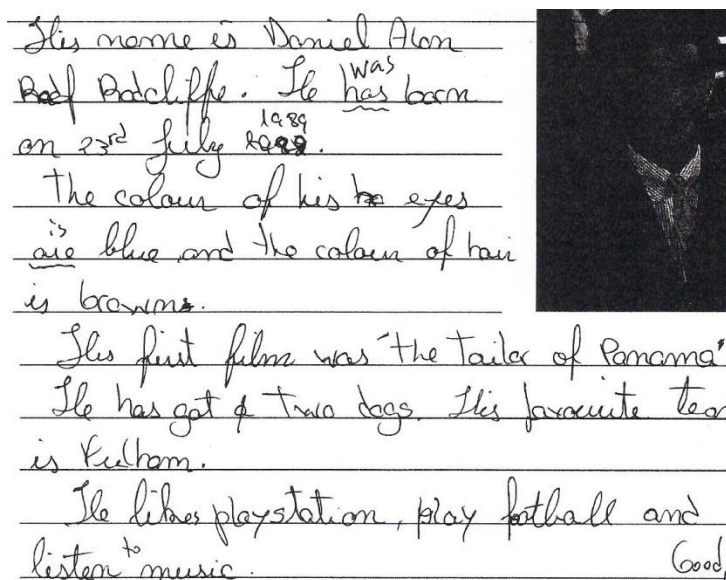 His name is Daniel Alan
Radcliffe. He has was born
on 23rd July 1989.
The colour of his eyes
are is blue and the colour of hair
is brown.
His first film was "The Tailor of Panama"
He has got two dogs. His favourite team
is Fulham.
He likes playstation, play football and
listen to music.
Good